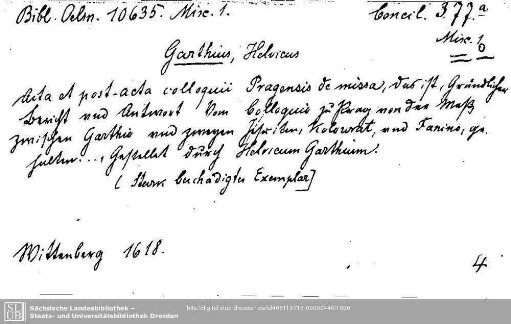 Bibl. Oelsn. 10635. Misc. 1.
Concil. 377.a
Misc. 1
Garthius, Helvicus
Acta et post-acta colloquii Pragensis de missa, das ist, Gründlicher
Bericht vnd Antwort vom Colloquio zu Prag von der Meß
zwischen Garthio vnd zweyen Jesuiten, Kolowrat, vnd Fanino, ge-
halten..., Gestellet durch Helvicum Garthium.
(Stark beschädigtes Exemplar]
Wittenberg 1618.
4
SLUB
Sächsische Landesbibliothek –
Staats- und Universitätsbibliothek Dresden